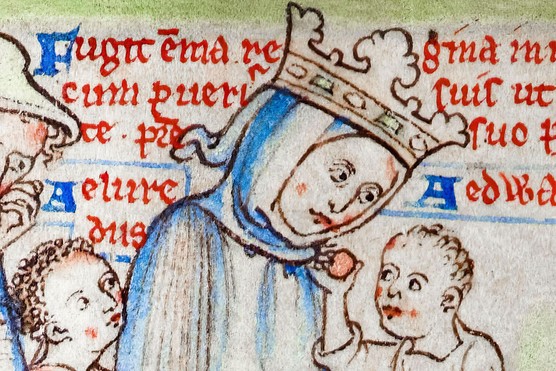 Fugit ēma regina
cum pueri suis ut
te · pr̄e suo
Aelure Aedwa
dus